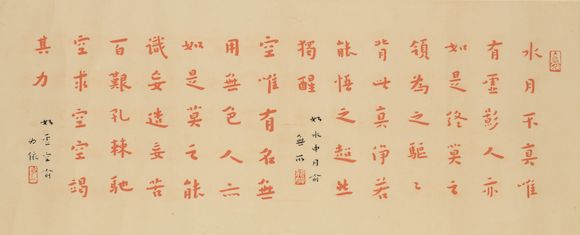 水月不真唯
有虛影人亦
如是終莫之
領為之驅〻
背此真淨若
能悟之超然
獨醒
如水中月俞
無所
空唯有名無
用無色人亦
如是莫之能
識妄造妄苦
百艱孔棘馳
空求空空竭
其力
如虛空俞